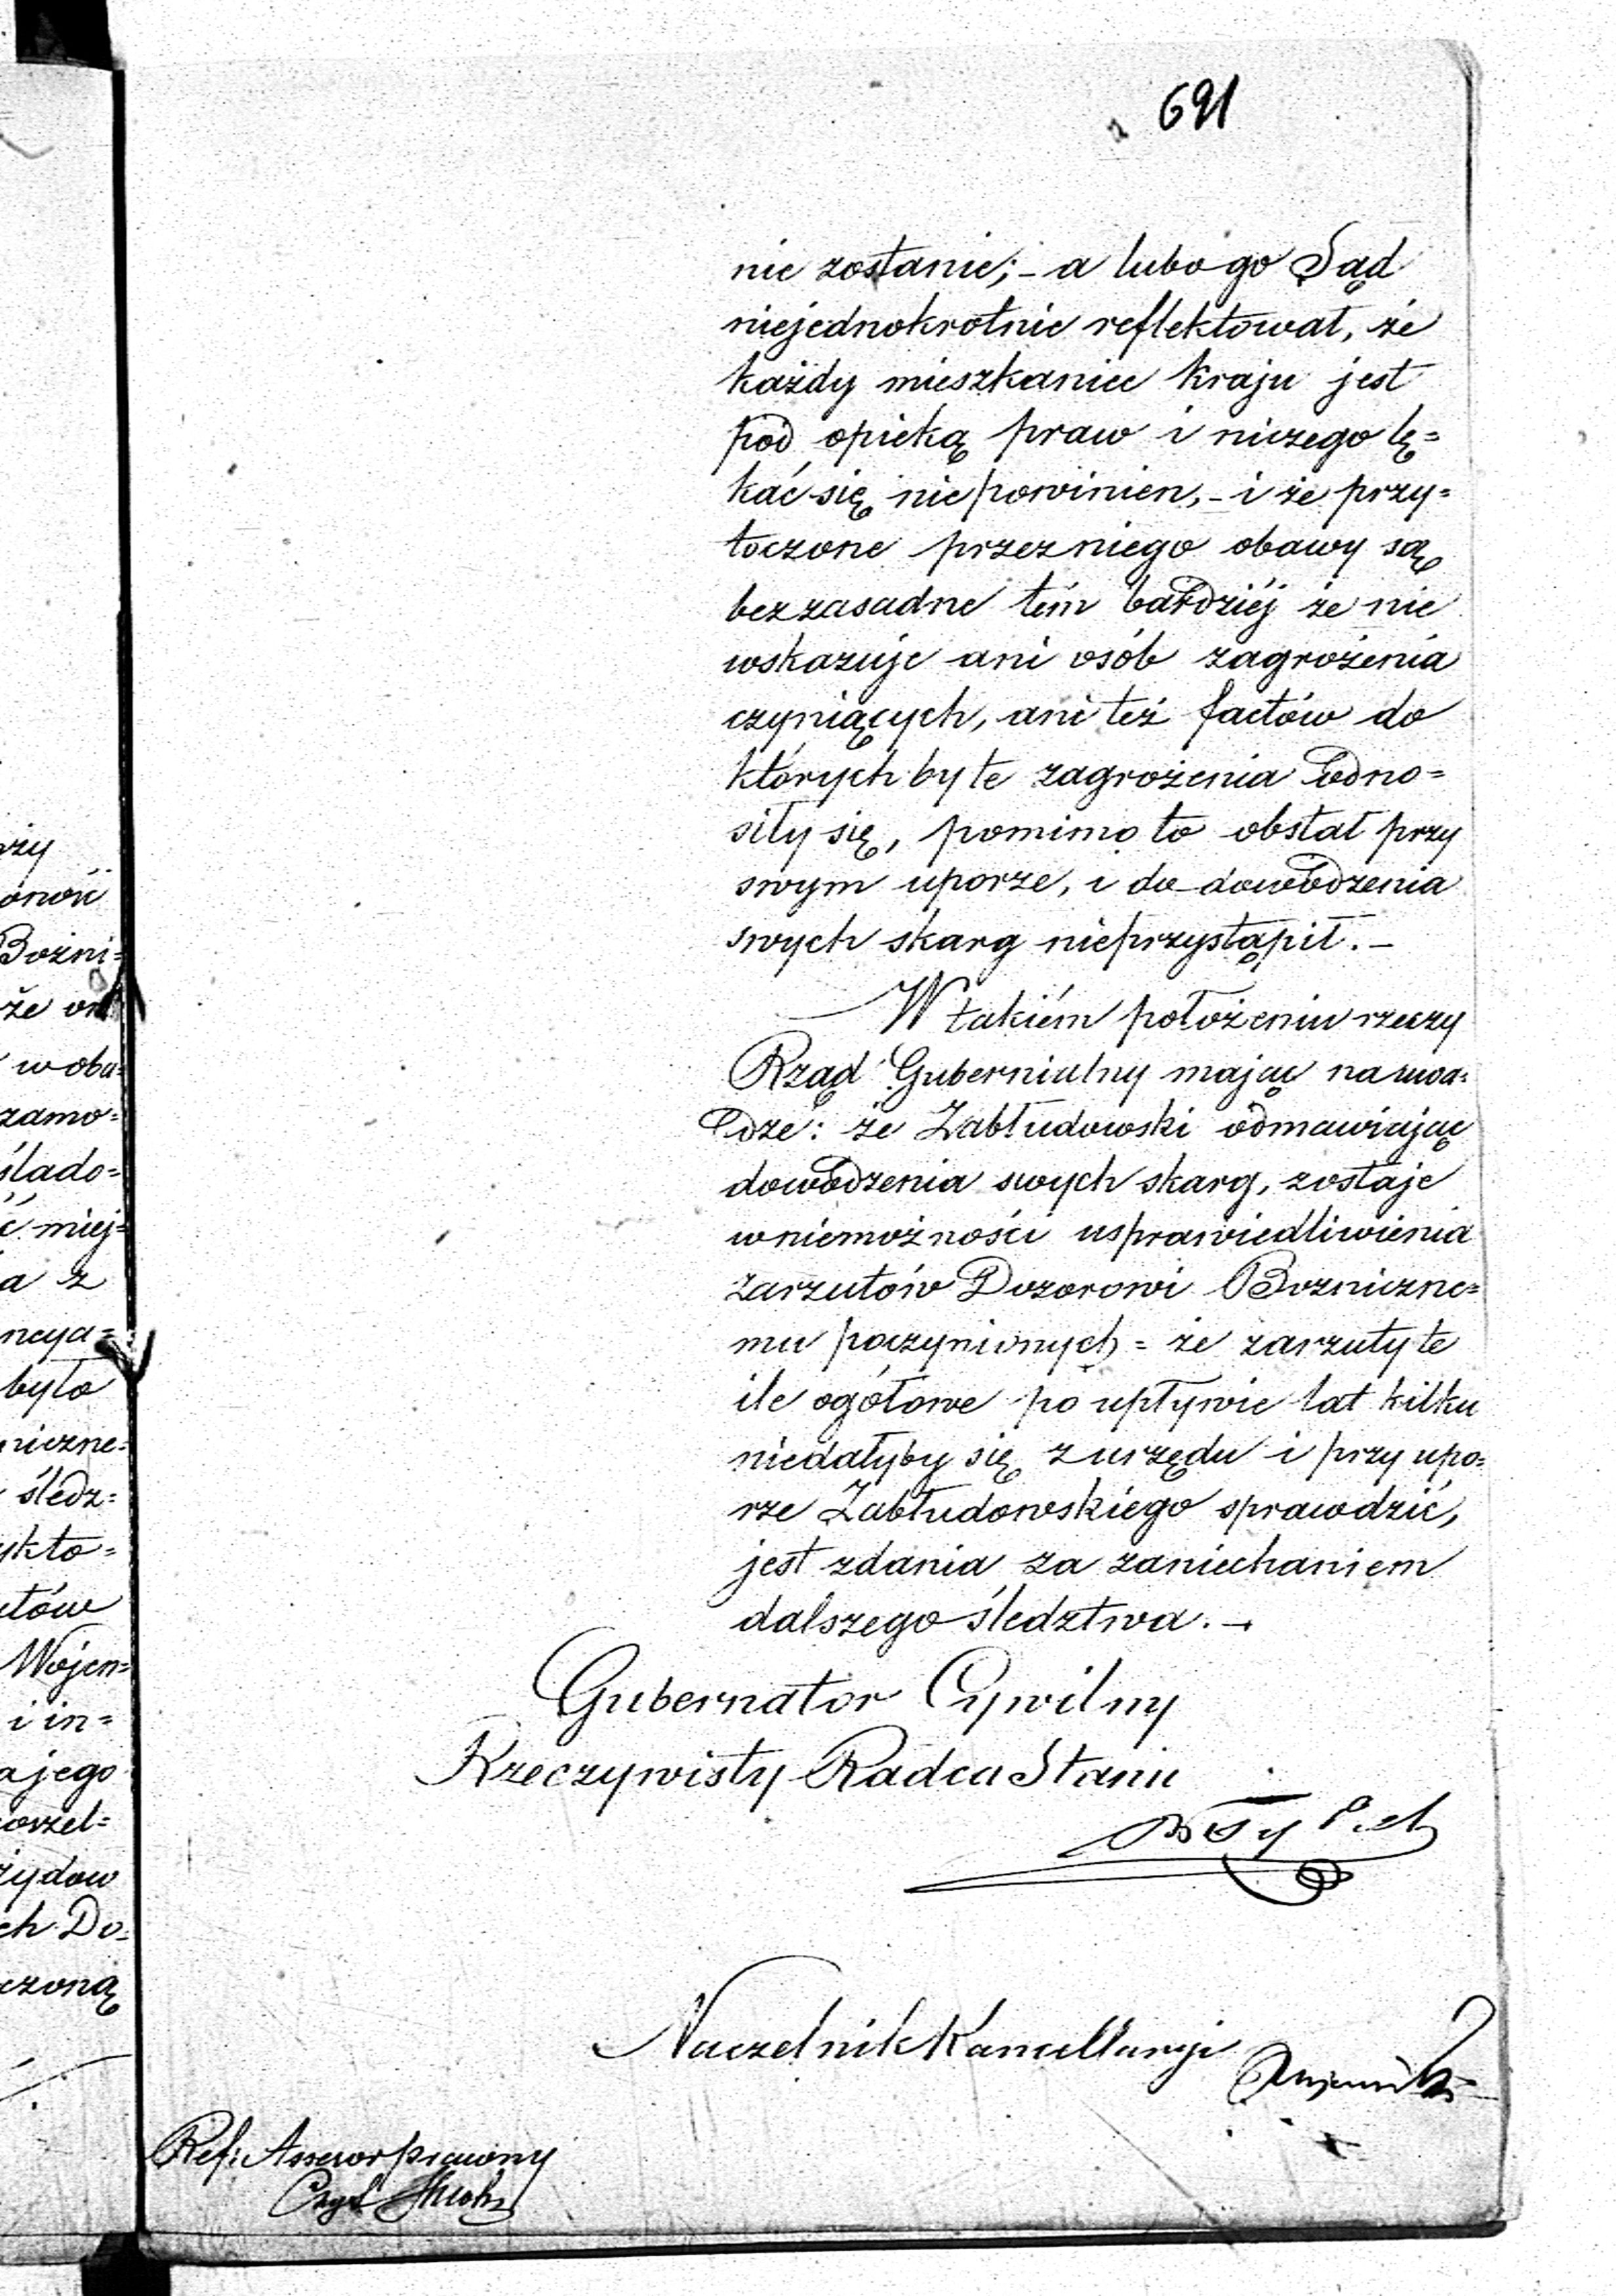 691
nie zostanie; - a lubo go Sąd
niejednokrotnie reflektował, że
każdy mieszkaniec kraju jest
pod opieką praw i niczego lę=
kać się nie powinien, - i że przy=
toczone przez niego obawy są
bezzasadne tém bardziéj że nie
wskazuje ani osób zagrożenia
czyniących, ani też factów do
których by te zagrożenia odno=
siły się, pomimo to obstał przy
swym uporze, i do dowodzenia
swych skarg nieprzystąpił. -
W takiém położeniu rzeczy
Rząd Gubernialny mając na uwa=
dze: że Zabłudowski odmawiając
dowodzenia swych skarg, zostaje
w niemożności usprawiedliwienia
zarzutów Dozorowi Bozniczne=
mu poczynionych = że zarzuty te
ile ogółowe po upływie lat kilku
niedałyby się z urzędu i przy upo=
rze Zabłudowskiego sprawdzić,
jest zdania za zaniechaniem
dalszego śledztwa. -
Gubernator Cywilny
Rzeczywisty Radca Stanu
Naczelnik Kancellaryi
Ref: Assessor prawny
rzy
Bożni=
że on
w oba=
zamo=
ślado=
ć miej=
a z
ncya=
było
niczne=
śledz=
ykto=
utów
Wojen=
i in=
a jego
orzel=
żydow
ch Do=
czoną